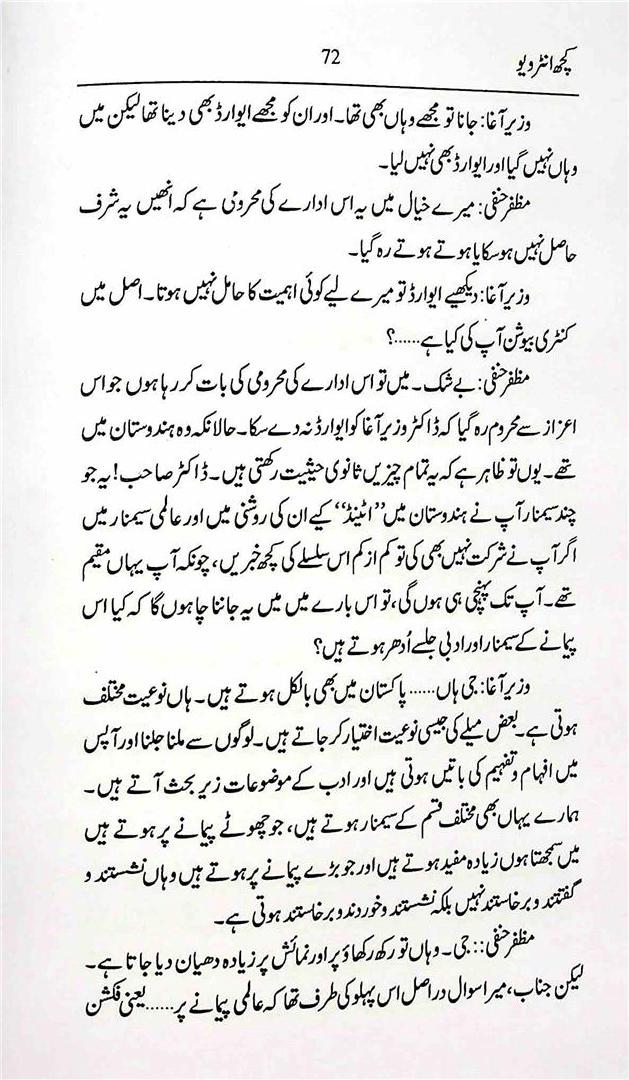 کچھ انٹرویو
72
وزیر آغا: جانا تو مجھے وہاں بھی تھا۔ اور ان کو مجھے ایوارڈ بھی دینا تھا لیکن میں
وہاں نہیں گیا اور ایوارڈ بھی نہیں لیا۔
مظفر حنفی: میرے خیال میں یہ اس ادارے کی محرومی ہے کہ انھیں یہ شرف
حاصل نہیں ہو سکا یا ہوتے ہوتے رہ گیا۔
وزیر آغا: دیکھیے ایوارڈ تو میرے لیے کوئی اہمیت کا حامل نہیں ہوتا۔ اصل میں
کنٹری بیوشن آپ کی کیا ہے......؟
مظفر حنفی: بے شک۔ میں تو اس ادارے کی محرومی کی بات کر رہا ہوں جو اس
اعزاز سے محروم رہ گیا کہ ڈاکٹر وزیر آغا کو ایوارڈ نہ دے سکا۔ حالانکہ وہ ہندوستان میں
تھے۔ یوں تو ظاہر ہے کہ یہ تمام چیزیں ثانوی حیثیت رکھتی ہیں۔ ڈاکٹر صاحب! یہ جو
چند سیمنار آپ نے ہندوستان میں ’’اٹینڈ‘‘ کیے ان کی روشنی میں اور عالمی سیمنار میں
اگر آپ نے شرکت نہیں بھی کی تو کم از کم اس سلسلے کی کچھ خبریں، چونکہ آپ یہاں مقیم
تھے۔ آپ تک پہنچی ہی ہوں گی، تو اس بارے میں میں یہ جاننا چاہوں گا کہ کیا اس
پیمانے کے سیمنار اور ادبی جلسے اُدھر ہوتے ہیں؟
وزیر آغا: جی ہاں...... پاکستان میں بھی بالکل ہوتے ہیں۔ ہاں نوعیت مختلف
ہوتی ہے۔ بعض میلے کی جیسی نوعیت اختیار کر جاتے ہیں۔ لوگوں سے ملنا جلنا اور آپس
میں افہام و تفہیم کی باتیں ہوتی ہیں اور ادب کے موضوعات زیر بحث آتے ہیں۔
ہمارے یہاں بھی مختلف قسم کے سیمنار ہوتے ہیں، جو چھوٹے پیمانے پر ہوتے ہیں
میں سمجھتا ہوں زیادہ مفید ہوتے ہیں اور جو بڑے پیمانے پر ہوتے ہیں وہاں نشستند و
گفتند و برخاستند نہیں بلکہ نشستند و خوردند و برخاستند ہوتی ہے۔
مظفر حنفی:: جی۔ وہاں تو رکھ رکھاؤ پر اور نمائش پر زیادہ دھیان دیا جاتا ہے۔
لیکن جناب، میرا سوال دراصل اس پہلو کی طرف تھا کہ عالمی پیمانے پر...... یعنی فکشن